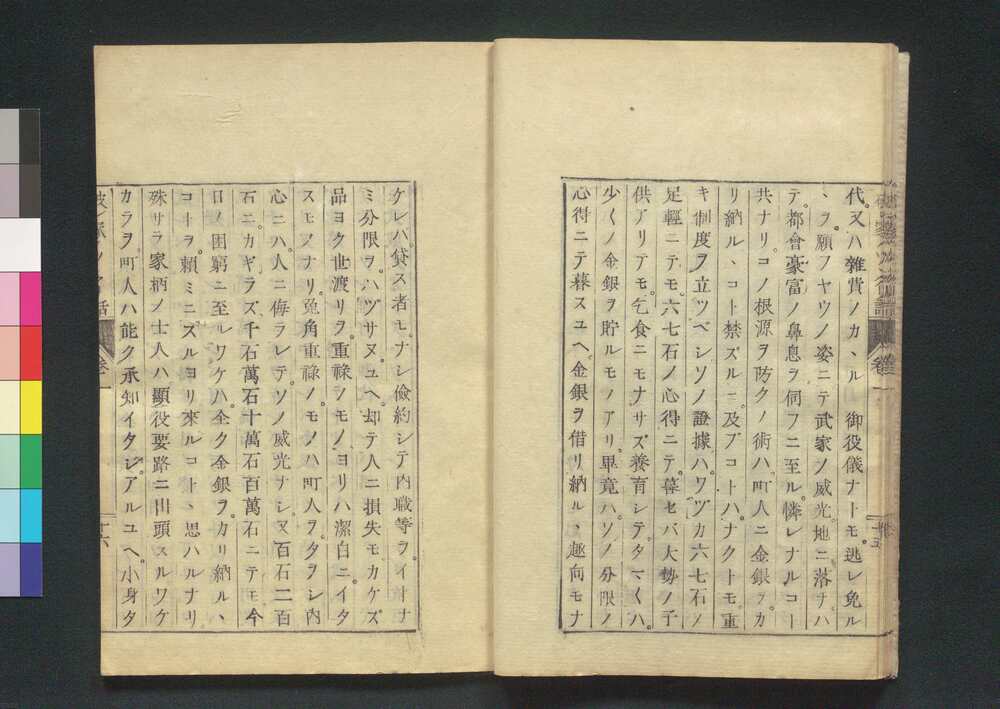 代。又ハ雜費ノカヽル　御役儀ナトモ。逃レ免ル
ヽヲ願フヤウノ姿ニテ武家ノ威光。地ニ落チ。ハ
テ。都會豪富ノ鼻息ヲ伺フニ至ル。憐レナルコト
共ナリ。コノ根源ヲ防クノ術ハ。町人ニ金銀ヲカ
リ納ルヽコト禁ズルニ及ブコトハ。ナクトモ。重
キ制度ヲ立ツベシソノ證據ハ。ワヅカ六七石ノ
足輕ニテモ。六七石ノ心得ニテ。暮セバ大勢ノ子
供アリテモ。乞食ニモナサズ養育シテ。タマ〱ハ。
少クノ金銀ヲ貯ルモノアリ。畢竟ハ。ソノ分限ノ
心得ニテ暮スユヘ。金銀ヲ借リ納ルヽ趣向モナ
ケレバ。貸ス者モ。ナシ儉約シテ內職等ヲ。イトナ
ミ分限ヲ。ハヅサヌ。ユヘ。却テ人ニ損失モカケズ
品ヨク世渡リヲ。重祿ノモノ。ヨリハ潔白ニ。イタ
スモノナリ。兎角重祿ノ。モノハ町人ヲ。タヲシ內
心ニハ。人ニ侮ラレテ。ソノ威光ナシ又百石二百
石ニ。カギラズ千石萬石十萬石百萬石ニテモ今
日ノ困窮ニ至ルワケハ。全ク金銀ヲ。カリ納ルヽ
コトヲ。賴ミニズルヨリ來ルコトヽ思ハルルナリ
殊サラ家柄ノ士人ハ顯役要路ニ出頭スルワケ
カラヲ。町人ハ能ク承知イタシ。アルユヘ。小身タ
卷一
十六
卷一
十五